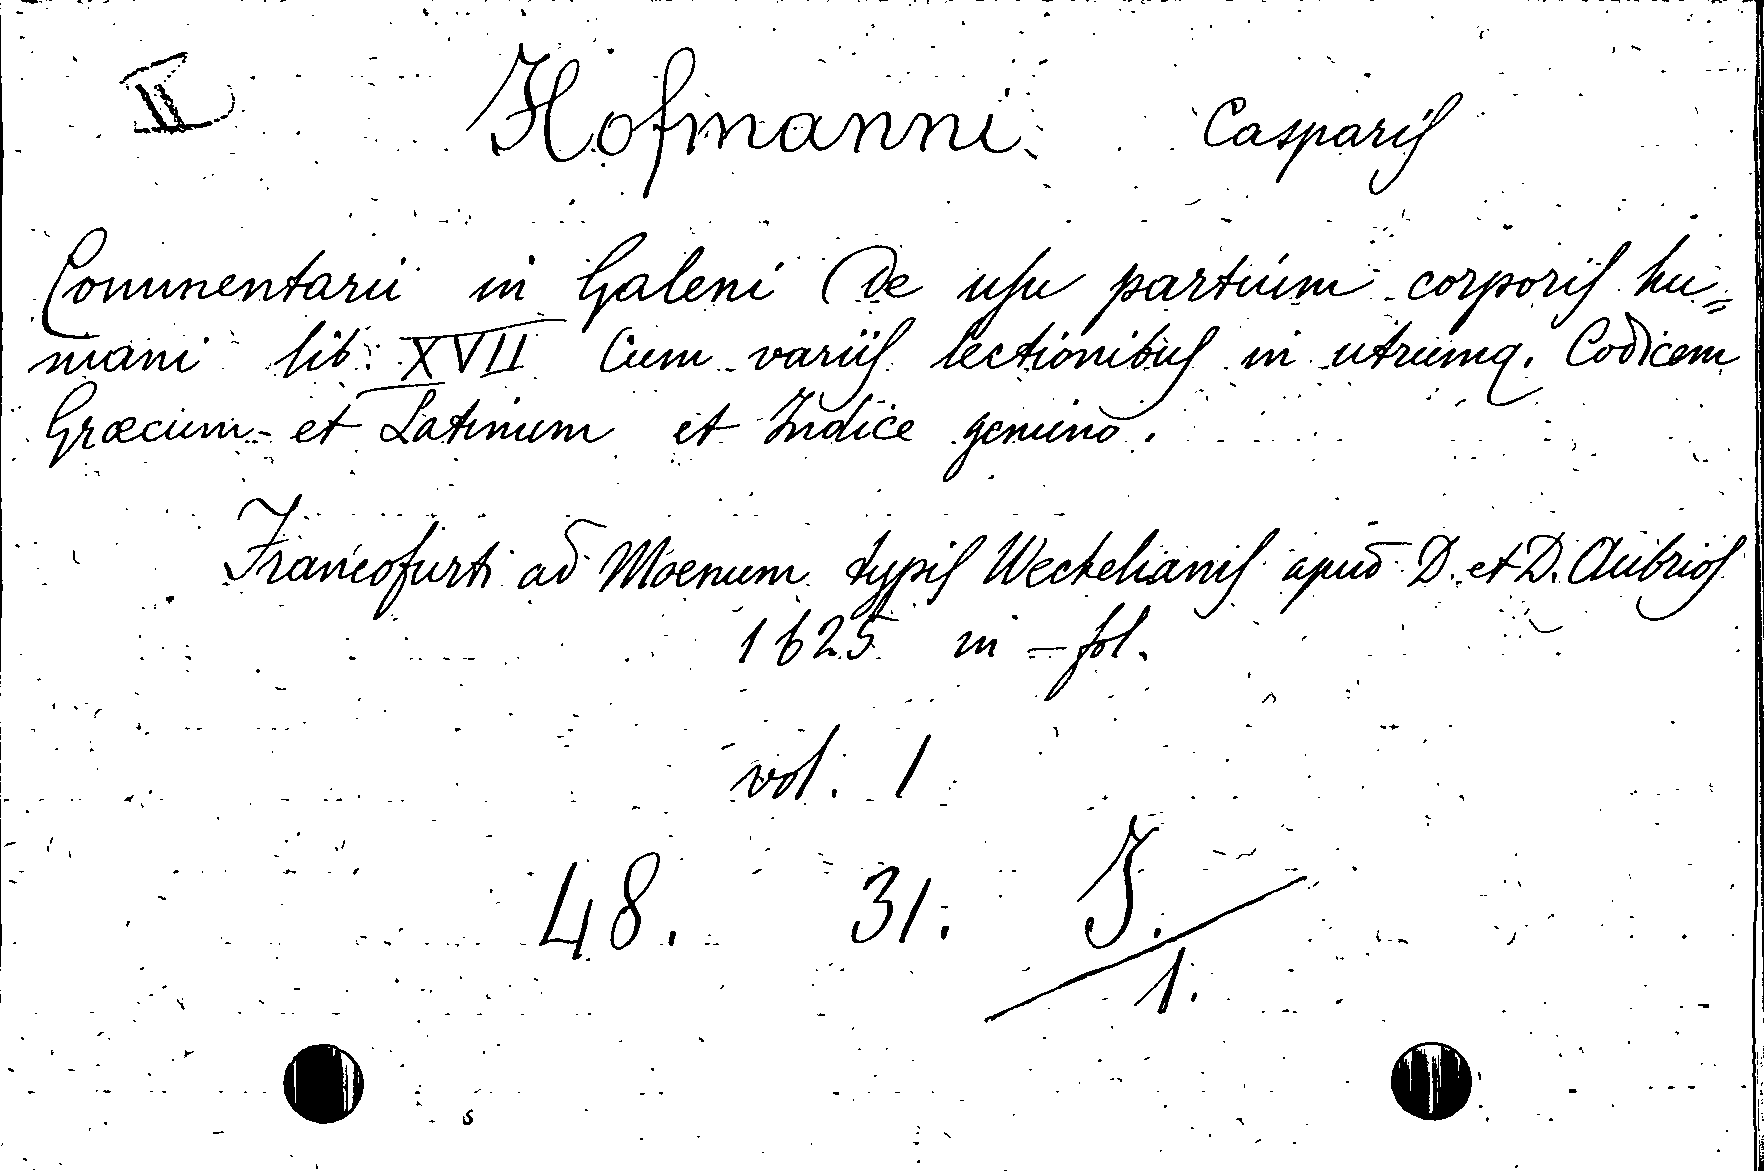 II Hofmanni Casparis
Commentarii in Galeni De usu partium corporis hu=
mani lib. XVII Cum variis lectionibus in utrumq. Codicem
Græcum et Latinum et Indice gemino.
Francofurti ad Moenum typis Wechelianis apud D. et D. Aubrios
1625 in-fol.
vol. 1
48. 31. J./1.